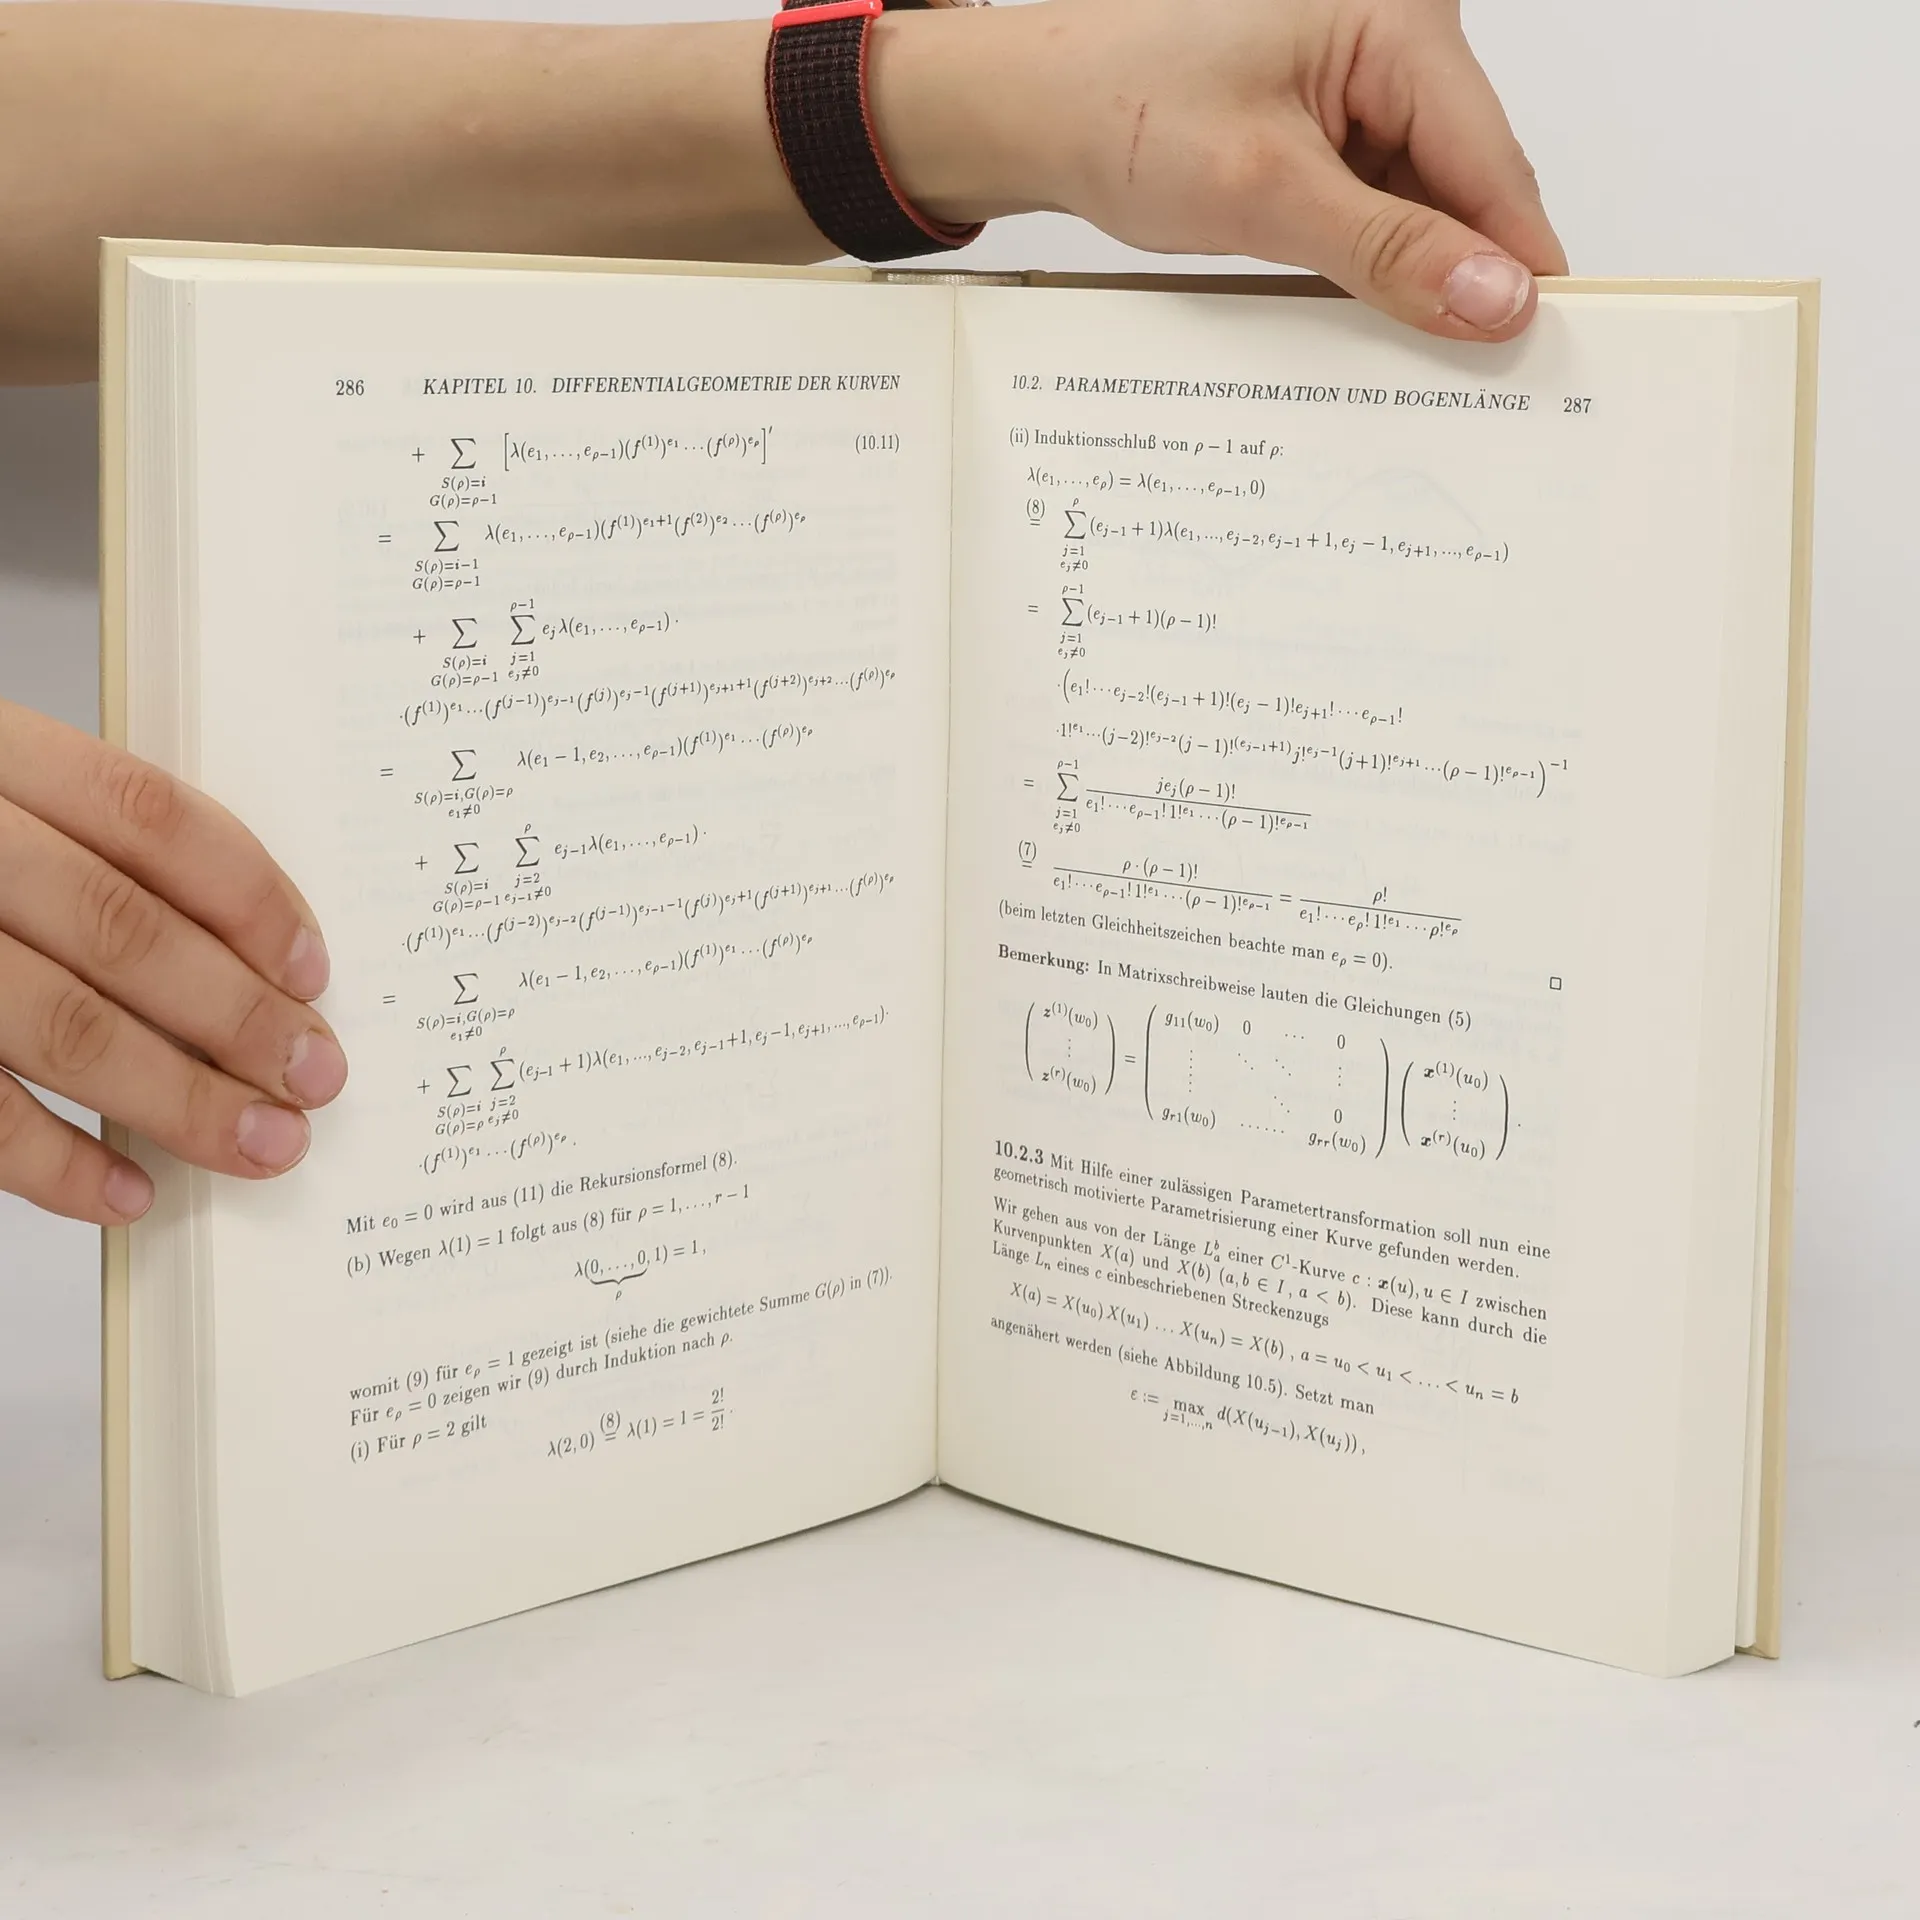 286 KAPITEL 10. DIFFERENTIALGEOMETRIE DER KURVEN
+ ∑_{S(ρ)=i, G(ρ)=ρ−1} [λ(e₁,…,e_{ρ−1})(f^{(1)})^{e₁}…(f^{(ρ)})^{e_ρ}]′ (10.11)
= ∑_{S(ρ)=i−1, G(ρ)=ρ−1} λ(e₁,…,e_{ρ−1})(f^{(1)})^{e₁+1}(f^{(2)})^{e₂}…(f^{(ρ)})^{e_ρ}
+ ∑_{S(ρ)=i, G(ρ)=ρ−1} ∑_{j=1, e_j≠0}^{ρ−1} e_jλ(e₁,…,e_{ρ−1})·
·(f^{(1)})^{e₁}…(f^{(j−1)})^{e_{j−1}}(f^{(j)})^{e_j−1}(f^{(j+1)})^{e_{j+1}+1}(f^{(j+2)})^{e_{j+2}}…(f^{(ρ)})^{e_ρ}
= ∑_{S(ρ)=i,G(ρ)=ρ, e₁≠0} λ(e₁−1,e₂,…,e_{ρ−1})(f^{(1)})^{e₁}…(f^{(ρ)})^{e_ρ}
+ ∑_{S(ρ)=i, G(ρ)=ρ−1} ∑_{j=2, e_{j−1}≠0}^{ρ} e_{j−1}λ(e₁,…,e_{ρ−1})·
·(f^{(1)})^{e₁}…(f^{(j−2)})^{e_{j−2}}(f^{(j−1)})^{e_{j−1}−1}(f^{(j)})^{e_j+1}(f^{(j+1)})^{e_{j+1}}…(f^{(ρ)})^{e_ρ}
= ∑_{S(ρ)=i,G(ρ)=ρ, e₁≠0} λ(e₁−1,e₂,…,e_{ρ−1})(f^{(1)})^{e₁}…(f^{(ρ)})^{e_ρ}
+ ∑_{S(ρ)=i, G(ρ)=ρ} ∑_{j=2, e_j≠0}^{ρ} (e_{j−1}+1)λ(e₁,…,e_{j−2},e_{j−1}+1,e_j−1,e_{j+1},…,e_{ρ−1})·
·(f^{(1)})^{e₁}…(f^{(ρ)})^{e_ρ}.
Mit e₀ = 0 wird aus (11) die Rekursionsformel (8).
(b) Wegen λ(1) = 1 folgt aus (8) für ρ = 1,…,r−1
λ(0,…,0,1) = 1,
ρ
womit (9) für e_ρ = 1 gezeigt ist (siehe die gewichtete Summe G(ρ) in (7)).
Für e_ρ = 0 zeigen wir (9) durch Induktion nach ρ.
(i) Für ρ = 2 gilt
λ(2,0) (8)= λ(1) = 1 = 2!/2!.
10.2. PARAMETERTRANSFORMATION UND BOGENLÄNGE 287
(ii) Induktionsschluß von ρ−1 auf ρ:
λ(e₁,…,e_ρ) = λ(e₁,…,e_{ρ−1},0)
(8)= ∑_{j=1, e_j≠0}^{ρ} (e_{j−1}+1)λ(e₁,…,e_{j−2},e_{j−1}+1,e_j−1,e_{j+1},…,e_{ρ−1})
= ∑_{j=1, e_j≠0}^{ρ−1} (e_{j−1}+1)(ρ−1)!
·(e₁!⋯e_{j−2}!(e_{j−1}+1)!(e_j−1)!e_{j+1}!⋯e_{ρ−1}!
·1!^{e₁}⋯(j−2)!^{e_{j−2}}(j−1)!^{(e_{j−1}+1)}j!^{e_j−1}(j+1)!^{e_{j+1}}…(ρ−1)!^{e_{ρ−1}})^{−1}
= ∑_{j=1, e_j≠0}^{ρ−1} je_j(ρ−1)! / e₁!⋯e_{ρ−1}!1!^{e₁}…(ρ−1)!^{e_{ρ−1}}
(7)= ρ·(ρ−1)! / e₁!⋯e_{ρ−1}!1!^{e₁}…(ρ−1)!^{e_{ρ−1}} = ρ! / e₁!⋯e_ρ!1!^{e₁}…ρ!^{e_ρ}
(beim letzten Gleichheitszeichen beachte man e_ρ = 0). □
Bemerkung: In Matrixschreibweise lauten die Gleichungen (5)
( z^{(1)}(w₀) ) ( g₁₁(w₀) 0 … 0 ) ( x^{(1)}(u₀) )
( ⋮ ) = ( ⋮ ⋱ ⋱ ⋮ ) ( ⋮ ) .
( ⋮ ⋱ 0 )
( z^{(r)}(w₀) ) ( g_{r1}(w₀) …… g_{rr}(w₀) ) ( x^{(r)}(u₀) )
10.2.3 Mit Hilfe einer zulässigen Parametertransformation soll nun eine
geometrisch motivierte Parametrisierung einer Kurve gefunden werden.
Wir gehen aus von der Länge L_a^b einer C¹-Kurve c : x(u), u ∈ I zwischen
Kurvenpunkten X(a) und X(b) (a,b ∈ I, a < b). Diese kann durch die
Länge L_n eines c einbeschriebenen Streckenzugs
X(a) = X(u₀)X(u₁)…X(u_n) = X(b), a = u₀ < u₁ < … < u_n = b
angenähert werden (siehe Abbildung 10.5). Setzt man
ε := max_{j=1,…,n} d(X(u_{j−1}),X(u_j)),